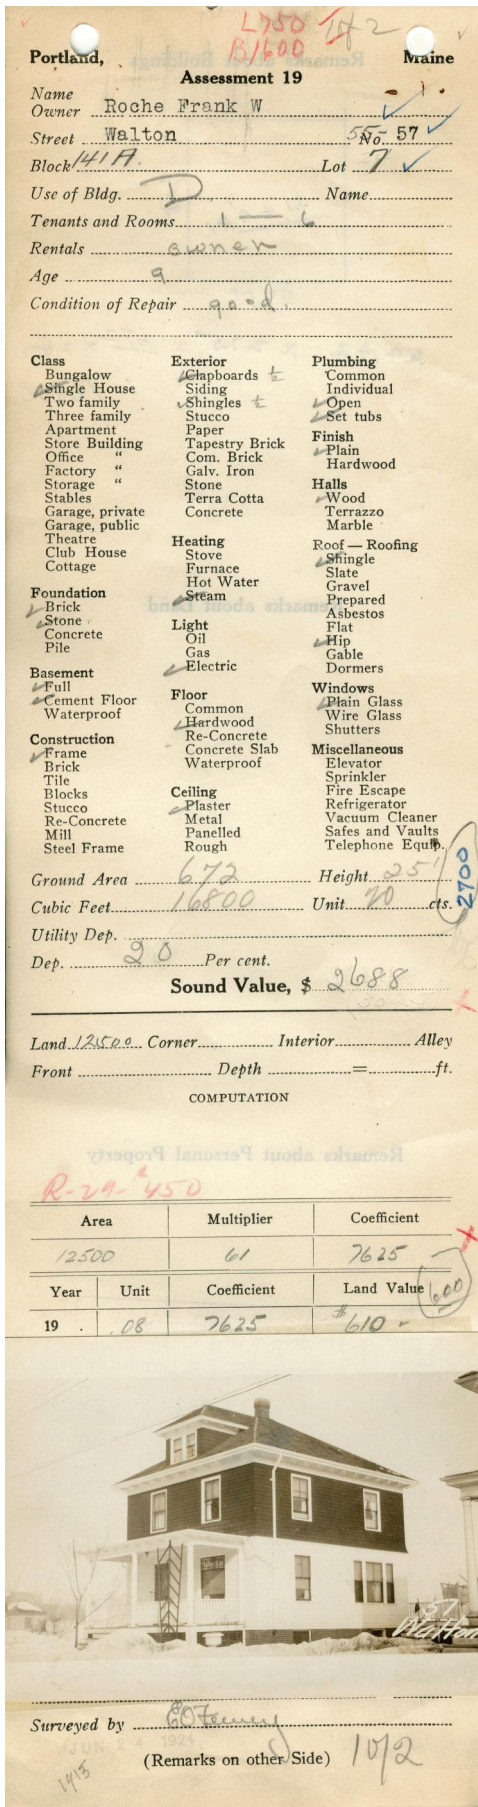 L750 1 of 2
B1600
Portland, Maine
Assessment 19
Name
Owner Roche Frank W
Street Walton No. 55-57
Block 141A. Lot 7
Use of Bldg. D Name
Tenants and Rooms 1 — 6
Rentals owner
Age 9
Condition of Repair good.
Class
Bungalow
Single House
Two family
Three family
Apartment
Store Building
Office "
Factory "
Storage "
Stables
Garage, private
Garage, public
Theatre
Club House
Cottage
Foundation
Brick
Stone
Concrete
Pile
Basement
Full
Cement Floor
Waterproof
Construction
Frame
Brick
Tile
Blocks
Stucco
Re-Concrete
Mill
Steel Frame
Exterior
Clapboards ½
Siding
Shingles ½
Stucco
Paper
Tapestry Brick
Com. Brick
Galv. Iron
Stone
Terra Cotta
Concrete
Heating
Stove
Furnace
Hot Water
Steam
Light
Oil
Gas
Electric
Floor
Common
Hardwood
Re-Concrete
Concrete Slab
Waterproof
Ceiling
Plaster
Metal
Panelled
Rough
Plumbing
Common
Individual
Open
Set tubs
Finish
Plain
Hardwood
Halls
Wood
Terrazzo
Marble
Roof — Roofing
Shingle
Slate
Gravel
Prepared
Asbestos
Flat
Hip
Gable
Dormers
Windows
Plain Glass
Wire Glass
Shutters
Miscellaneous
Elevator
Sprinkler
Fire Escape
Refrigerator
Vacuum Cleaner
Safes and Vaults
Telephone Equip.
Ground Area 672 Height 25'
Cubic Feet 16800 Unit 20 cts.
2700
Utility Dep.
Dep. 20 Per cent.
Sound Value, $ 2688
Land 12500 Corner Interior Alley
Front Depth = ft.
COMPUTATION
R-29-$450
Area Multiplier Coefficient
12500 61 7625
Year Unit Coefficient Land Value
600
19 . .08 7625 $610
57
Walton
Surveyed by
JUN 24 1924
(Remarks on other Side) 10/2
1915